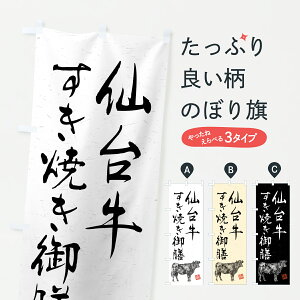 仙台牛
すき焼き御膳
たっぷり
良い柄
のぼり旗
やったね
えらべる
3タイプ
A
B
C
仙台牛
すき焼き御膳
仙台牛
すき焼き御膳
仙台牛
すき焼き御膳